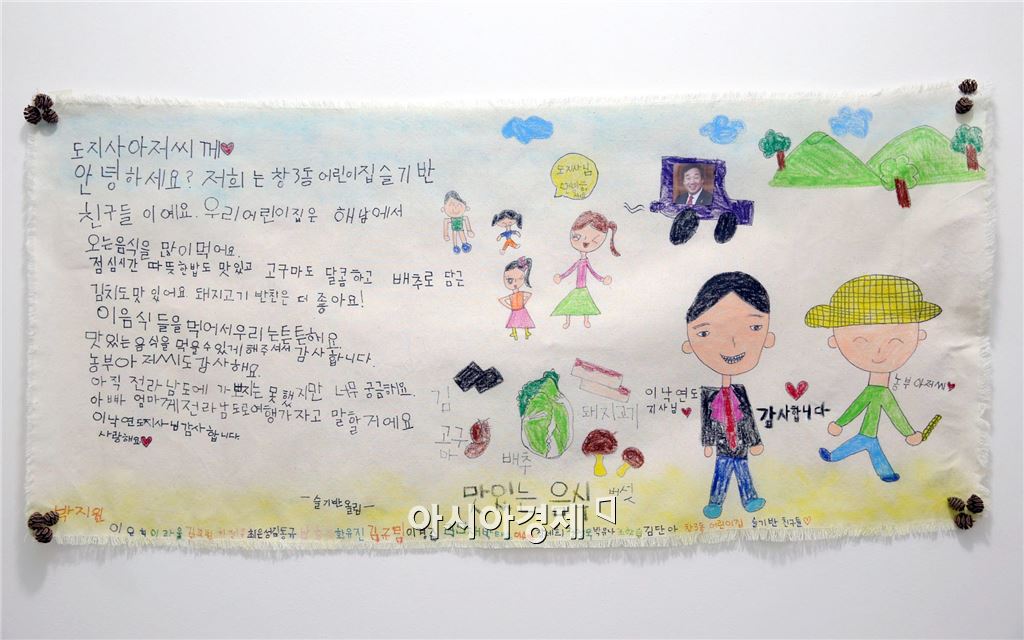 도지사아저씨께
안녕하세요? 저희는 창3동어린이집슬기반
친구들이에요. 우리어린이집은 해남에서
오는음식을 많이먹어요.
점심시간 따뜻한밥도 맛있고 고구마도 달콤하고 배추로 담근
김치도맛있어요. 돼지고기 반찬은 더 좋아요!
이음식들을먹어서우리는튼튼해요
맛있는음식을 먹을수있게해주셔서감사합니다.
농부아저씨도감사해요.
아직 전라남도에 가보지는 못했지만 너무 궁금해요.
아빠 엄마께전라남도로여행가자고 말할거에요
이낙연도지사님감사합니다
사랑해요
-슬기반올림-
도지사님
이낙연도
지사님
감사합니다
농부아저씨
김
고구
마
배추
돼지고기
버섯
맛있는 음식
박지원
최은성김동규
화유진
김단아 창3동 어린이집 슬기반 친구들
아시아경제